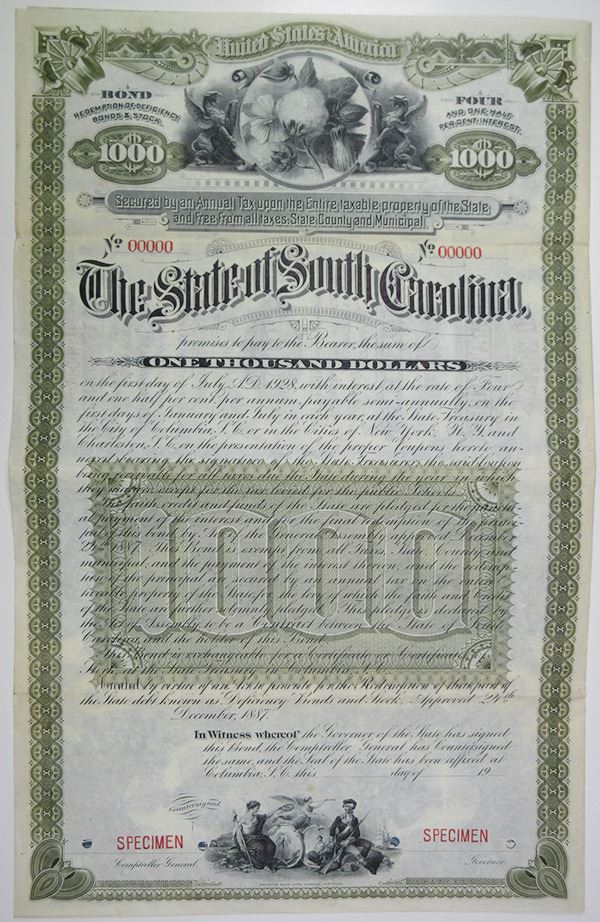 United States America
BOND
REDEMPTION OF DEFICIENCY
BONDS & STOCK.
1000
FOUR
AND ONE HALF
PER CENT. INTEREST.
1000
Secured by an Annual Tax upon the Entire taxable property of the State
and Free from all taxes, State, County and Municipal.
No 00000
No 00000
The State of South Carolina,
promises to pay to the Bearer, the sum of
ONE THOUSAND DOLLARS
on the first day of July A.D. 1928, with interest at the rate of Four
and one half per cent. per annum, payable semi-annually, on the
first days of January and July in each year, at the State Treasury in
the City of Columbia, S.C. or in the Cities of New York, N.Y. and
Charleston, S.C. on the presentation of the proper Coupons hereto an-
nexed bearing the signature of the State Treasurer, the said Coupons
being receivable for all taxes due the State during the year in which
they mature, except for the tax levied for the public Schools.
The faith credit and funds of the State are pledged for the punctual
payment of the interest and for the final redemption of the princi-
pal of this bond, by the General Assembly approved
This Bond is exempt from all Taxes, State, County and
Municipal, and the payment of the interest thereon, and the redemp-
tion of the principal are secured by an annual tax on the entire
taxable property of the State, for the levy of which the faith and credit
of the State, are further solemnly pledged. This pledge is declared by
the Assembly to be a Contract between the State of South
Carolina, and the holder of this Bond.
This Bond is exchangeable for a Certificate or Certificates of
Stock, at the State Treasury in Columbia, S.C.
Created by virtue of an Act to provide for the Redemption of that part of
the State debt known as Deficiency Bonds and Stock. Approved 24th
December, 1887.
In Witness whereof the Governor of the State has signed
this bond, the Comptroller General has Countersigned
the same, and the Seal of the State has been affixed at
Columbia, S.C. this day of 19
Countersigned
SPECIMEN
SPECIMEN
Comptroller General.
Governor.
1000
AMERICAN BANK NOTE COMPANY, NEW YORK.